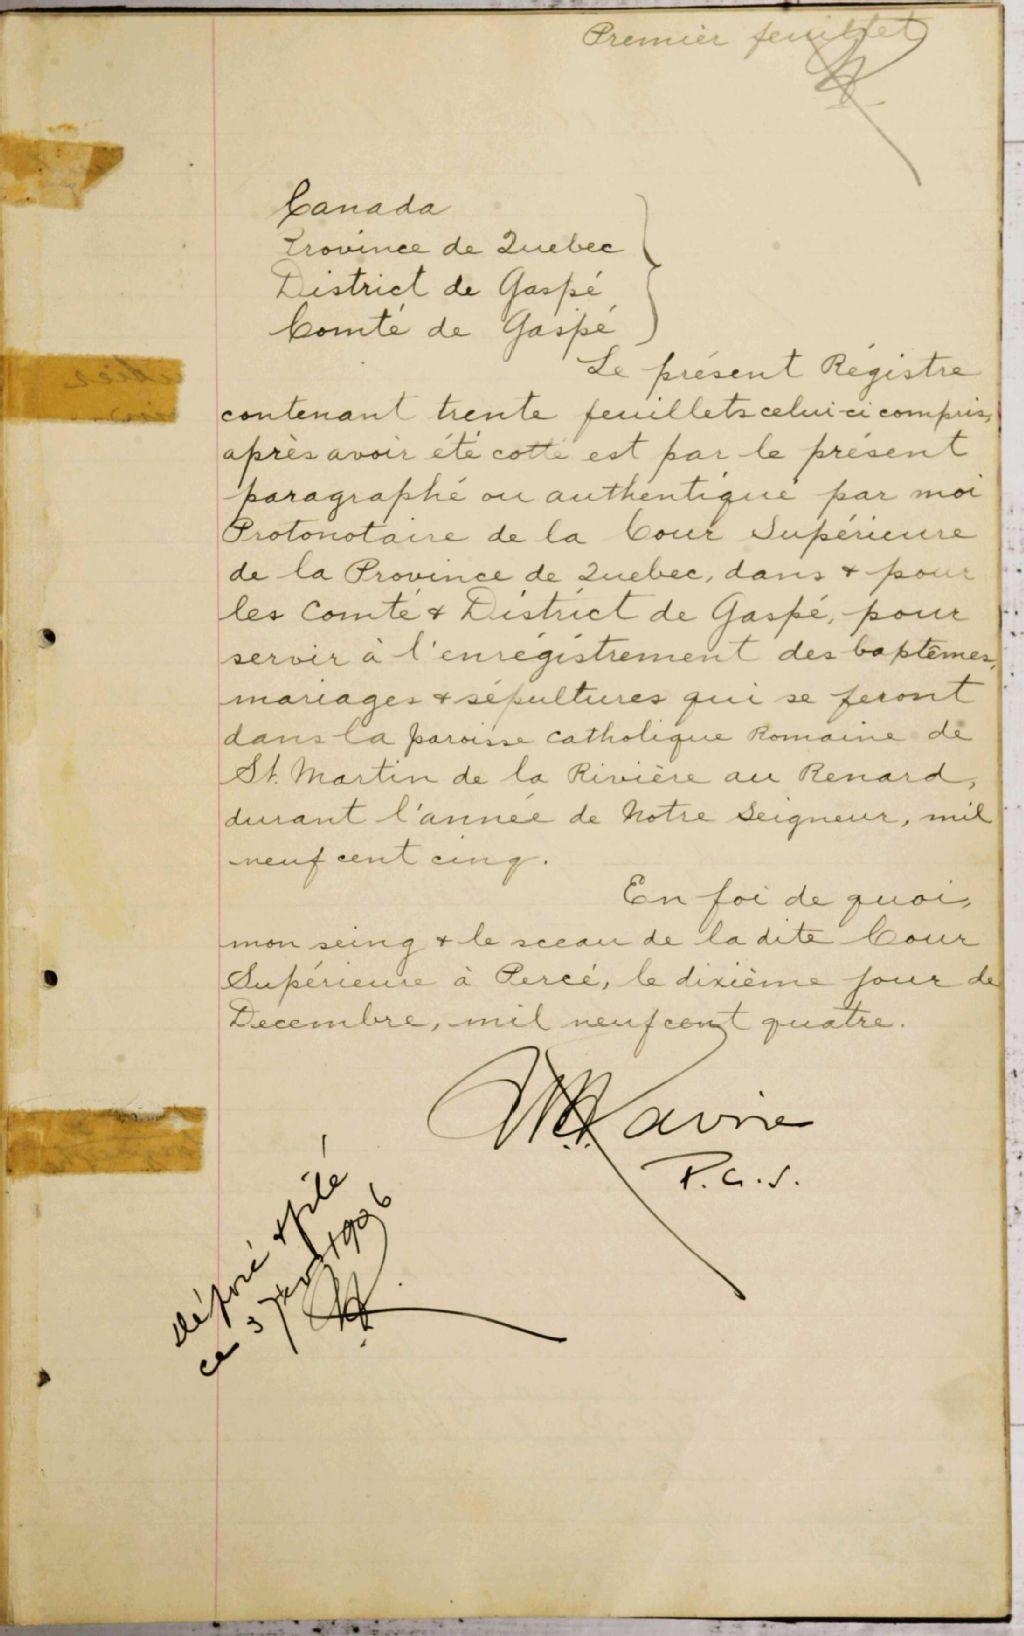 Premier feuillet
Canada
Province de Quebec
District de Gaspé
Comté de Gaspé
Le présent Régistre
contenant trente feuillets celui-ci compris,
après avoir été cotté est par le présent
paragraphé ou authentiqué par moi
Protonotaire de la Cour Supérieure
de la Province de Quebec, dans & pour
les Comté & District de Gaspé, pour
servir à l'enrégistrement des baptêmes,
mariages & sépultures qui se feront
dans la paroisse catholique Romaine de
St. Martin de la Rivière au Renard,
durant l'année de Notre Seigneur, mil
neuf cent cinq.
En foi de quoi,
mon seing & le sceau de la dite Cour
Supérieure à Percé, le dixième jour de
Decembre, mil neuf cent quatre.
Lavoie
P.C.S.
déposé & filé
ce 3 1906